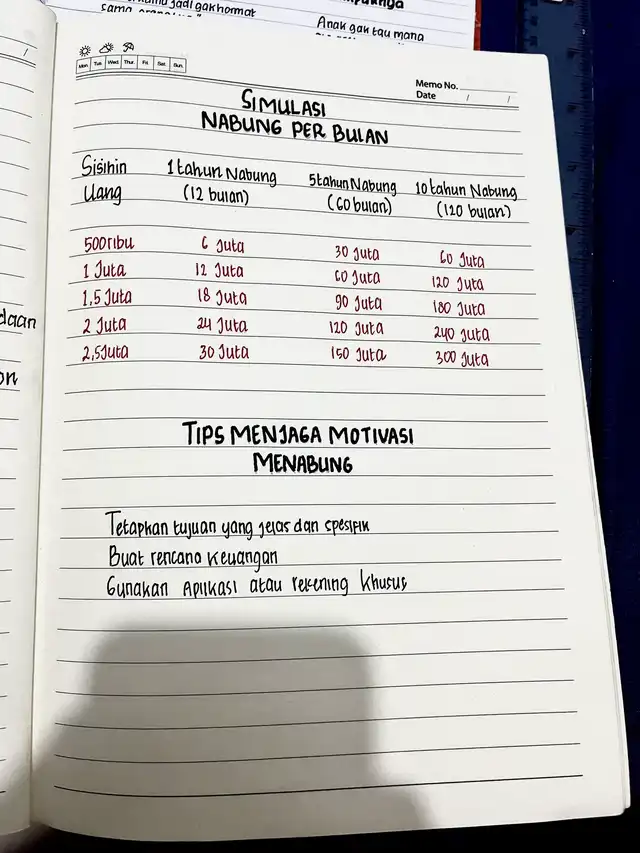 kamu jadi gak hormat
Anak gak tau mana
Mon. Tue. Wed. Thur. Fri. Sat. Sun.
Memo No.
Date / /
SIMULASI
NABUNG PER BULAN
Sisihin Uang 1 tahun Nabung (12 bulan) 5 tahun Nabung (60 bulan) 10 tahun Nabung (120 bulan)
500 ribu 6 Juta 30 Juta 60 Juta
1 Juta 12 Juta 60 Juta 120 Juta
1,5 Juta 18 Juta 90 Juta 180 Juta
2 Juta 24 Juta 120 Juta 240 Juta
2,5 Juta 30 Juta 150 Juta 300 Juta
daan
on
TIPS MENJAGA MOTIVASI
MENABUNG
Tetapkan tujuan yang jelas dan spesifik
Buat rencana keuangan
Gunakan Aplikasi atau rekening khusus